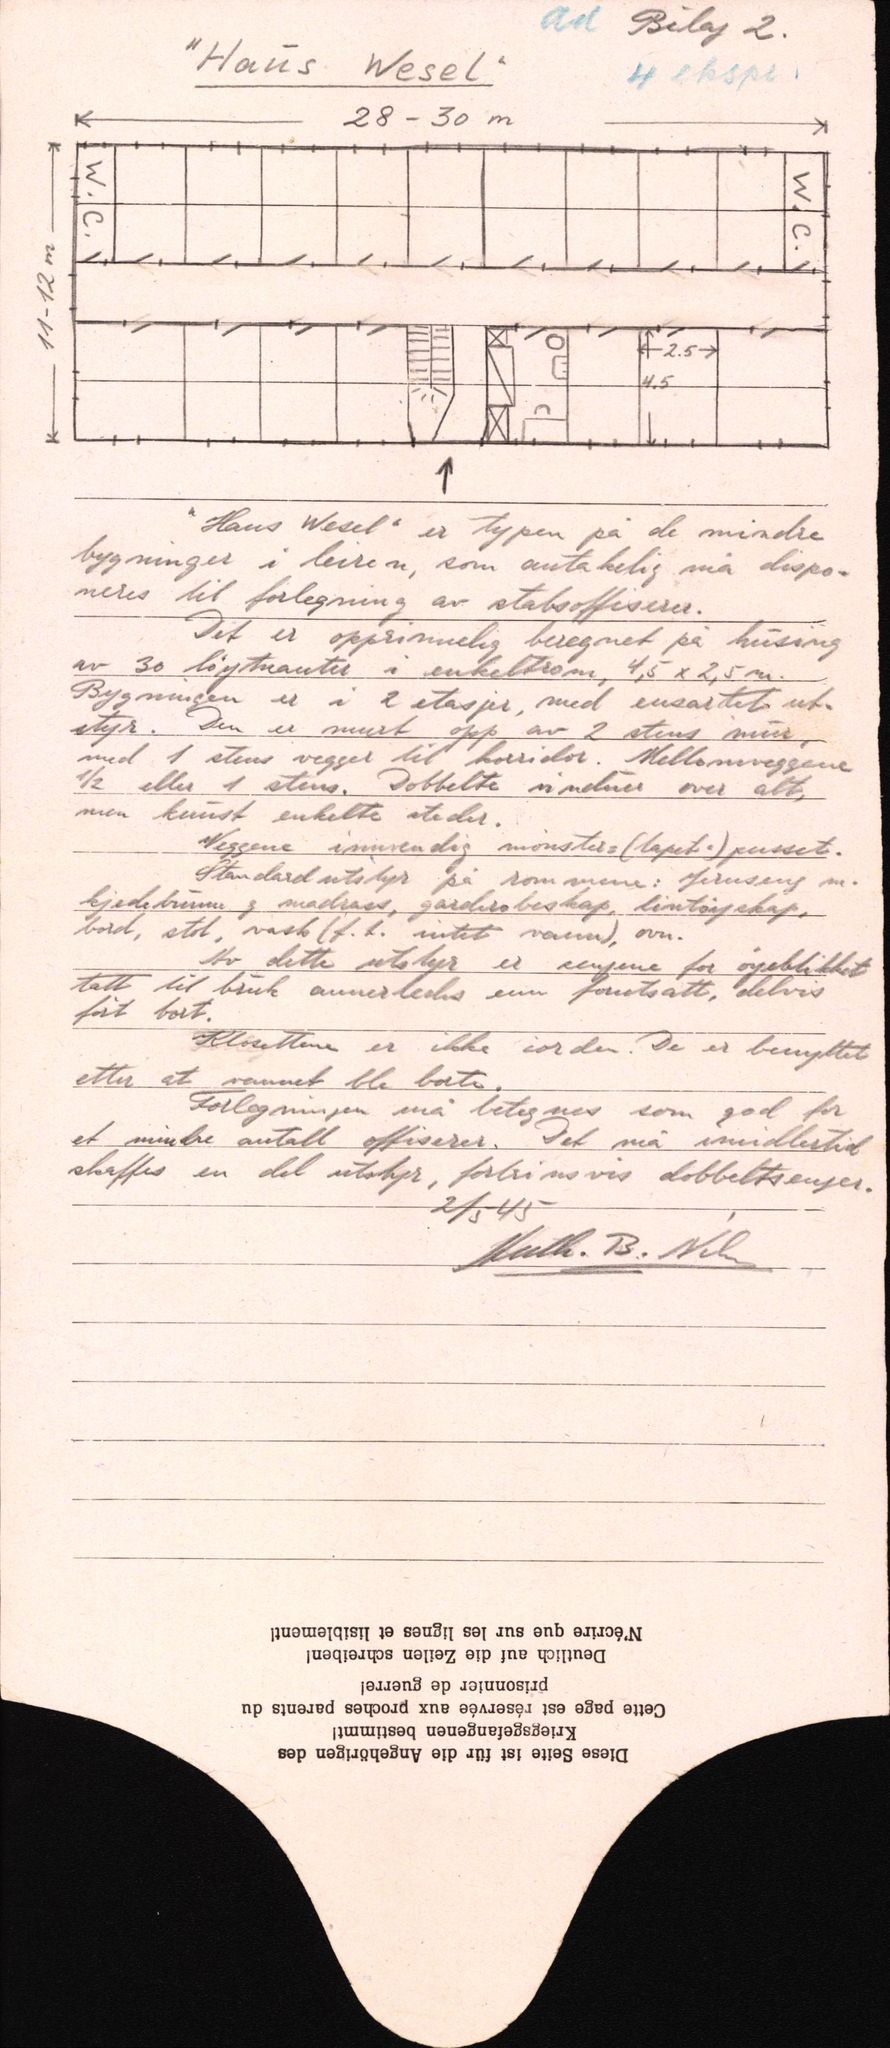 ad Bilag 2.
4 ekspl.
"Haus Wesel"
28 - 30 m
11-12 m
W.C.
W.C.
2.5
4.5
"Haus Wesel" er typen på de mindre
bygninger i leiren, som antakelig må dispo-
neres til forlegning av stabsoffiserer.
Det er opprinnelig beregnet på husing
av 30 löytnanter i enkeltrom, 4,5 x 2,5 m.
Bygningen er i 2 etasjer, med ensartet ut-
styr. Den er murt opp av 2 stens mur,
med 1 stens vegger til korridor. Mellomveggene
1/2 eller 1 stens. Dobbelte vinduer over alt,
men kunst enkelte steder.
Veggene innvendig mönster=(tapet=) pusset.
Standard utstyr på rommene: Jernseng m.
kjedebunn g madrass, garderobeskap, lintöyskap,
bord, stol, vask (f.t. intet vann), ovn.
Av dette utstyr er sengene for öyeblikket
tatt til bruk annerledes enn forutsatt, delvis
fört bort.
Klosettene er ikke iorden. De er benyttet
etter at vannet ble borte.
Forlegningen må betegnes som god for
et mindre antall offiserer. Det må imidlertid
skaffes en del utstyr, fortrinsvis dobbeltsenger.
2/5 45
B.
Diese Seite ist für die Angehörigen des
Kriegsgefangenen bestimmt!
Cette page est réservée aux proches parents du
prisonnier de guerre!
Deutlich auf die Zeilen schreiben!
N'écrire que sur les lignes et lisiblement!